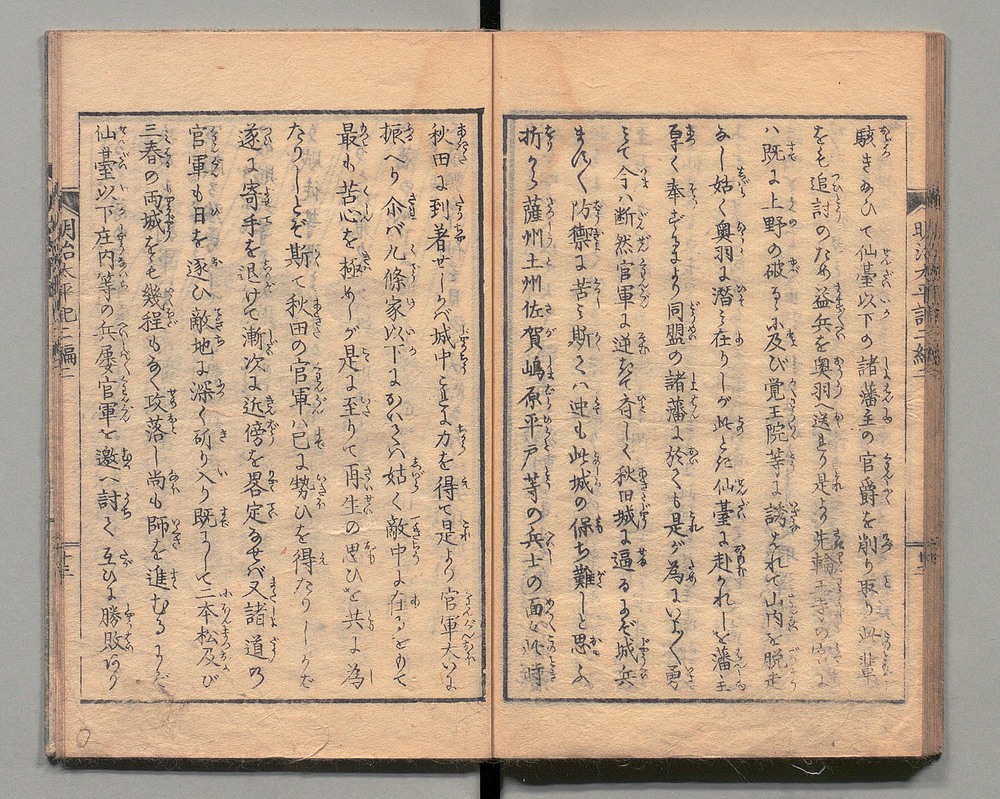 駭きあひて仙臺以下の諸藩主の官爵を削り取り此輩
をも追討のため益兵を奥羽へ送より是より先輪王寺の宮に
ハ既に上野の破るゝに及び覚王院等に誘はれて山内を脱走
なし姑く奥羽に潜み在りしが此とき仙臺に赴かれしを藩主
厚く奉ぜるより同盟の諸藩に於ても是が為にいよ〳〵勇
みて今ハ断然官軍に逆らひ斉しく秋田城に逼るまで城兵
防禦に苦しミ斯くハ迚も此城の保ち難しと思ふ
折から薩州土州佐賀嶋原平戸等の兵士の面々此時
秋田に到着せしかバ城中これに力を得て是より官軍大いに
振へり尓バ九條家以下にかハ姑く敵中に在るをもて
最も苦心を極めしが是に至りて再生の思ひを共に為
たりしとぞ斯て秋田の官軍ハ已に勢ひを得たりしかば
遂に寄手を退けて漸次に近傍を畧定なせバ又諸道の
官軍も日を逐ひ敵地に深く斫り入り既にして二本松及び
三春の両城をも幾程もなく攻落し尚も師を進むるに
仙臺以下庄内等の兵屡官軍を邀へ討て互ひに勝敗あり
明治太平記二編二